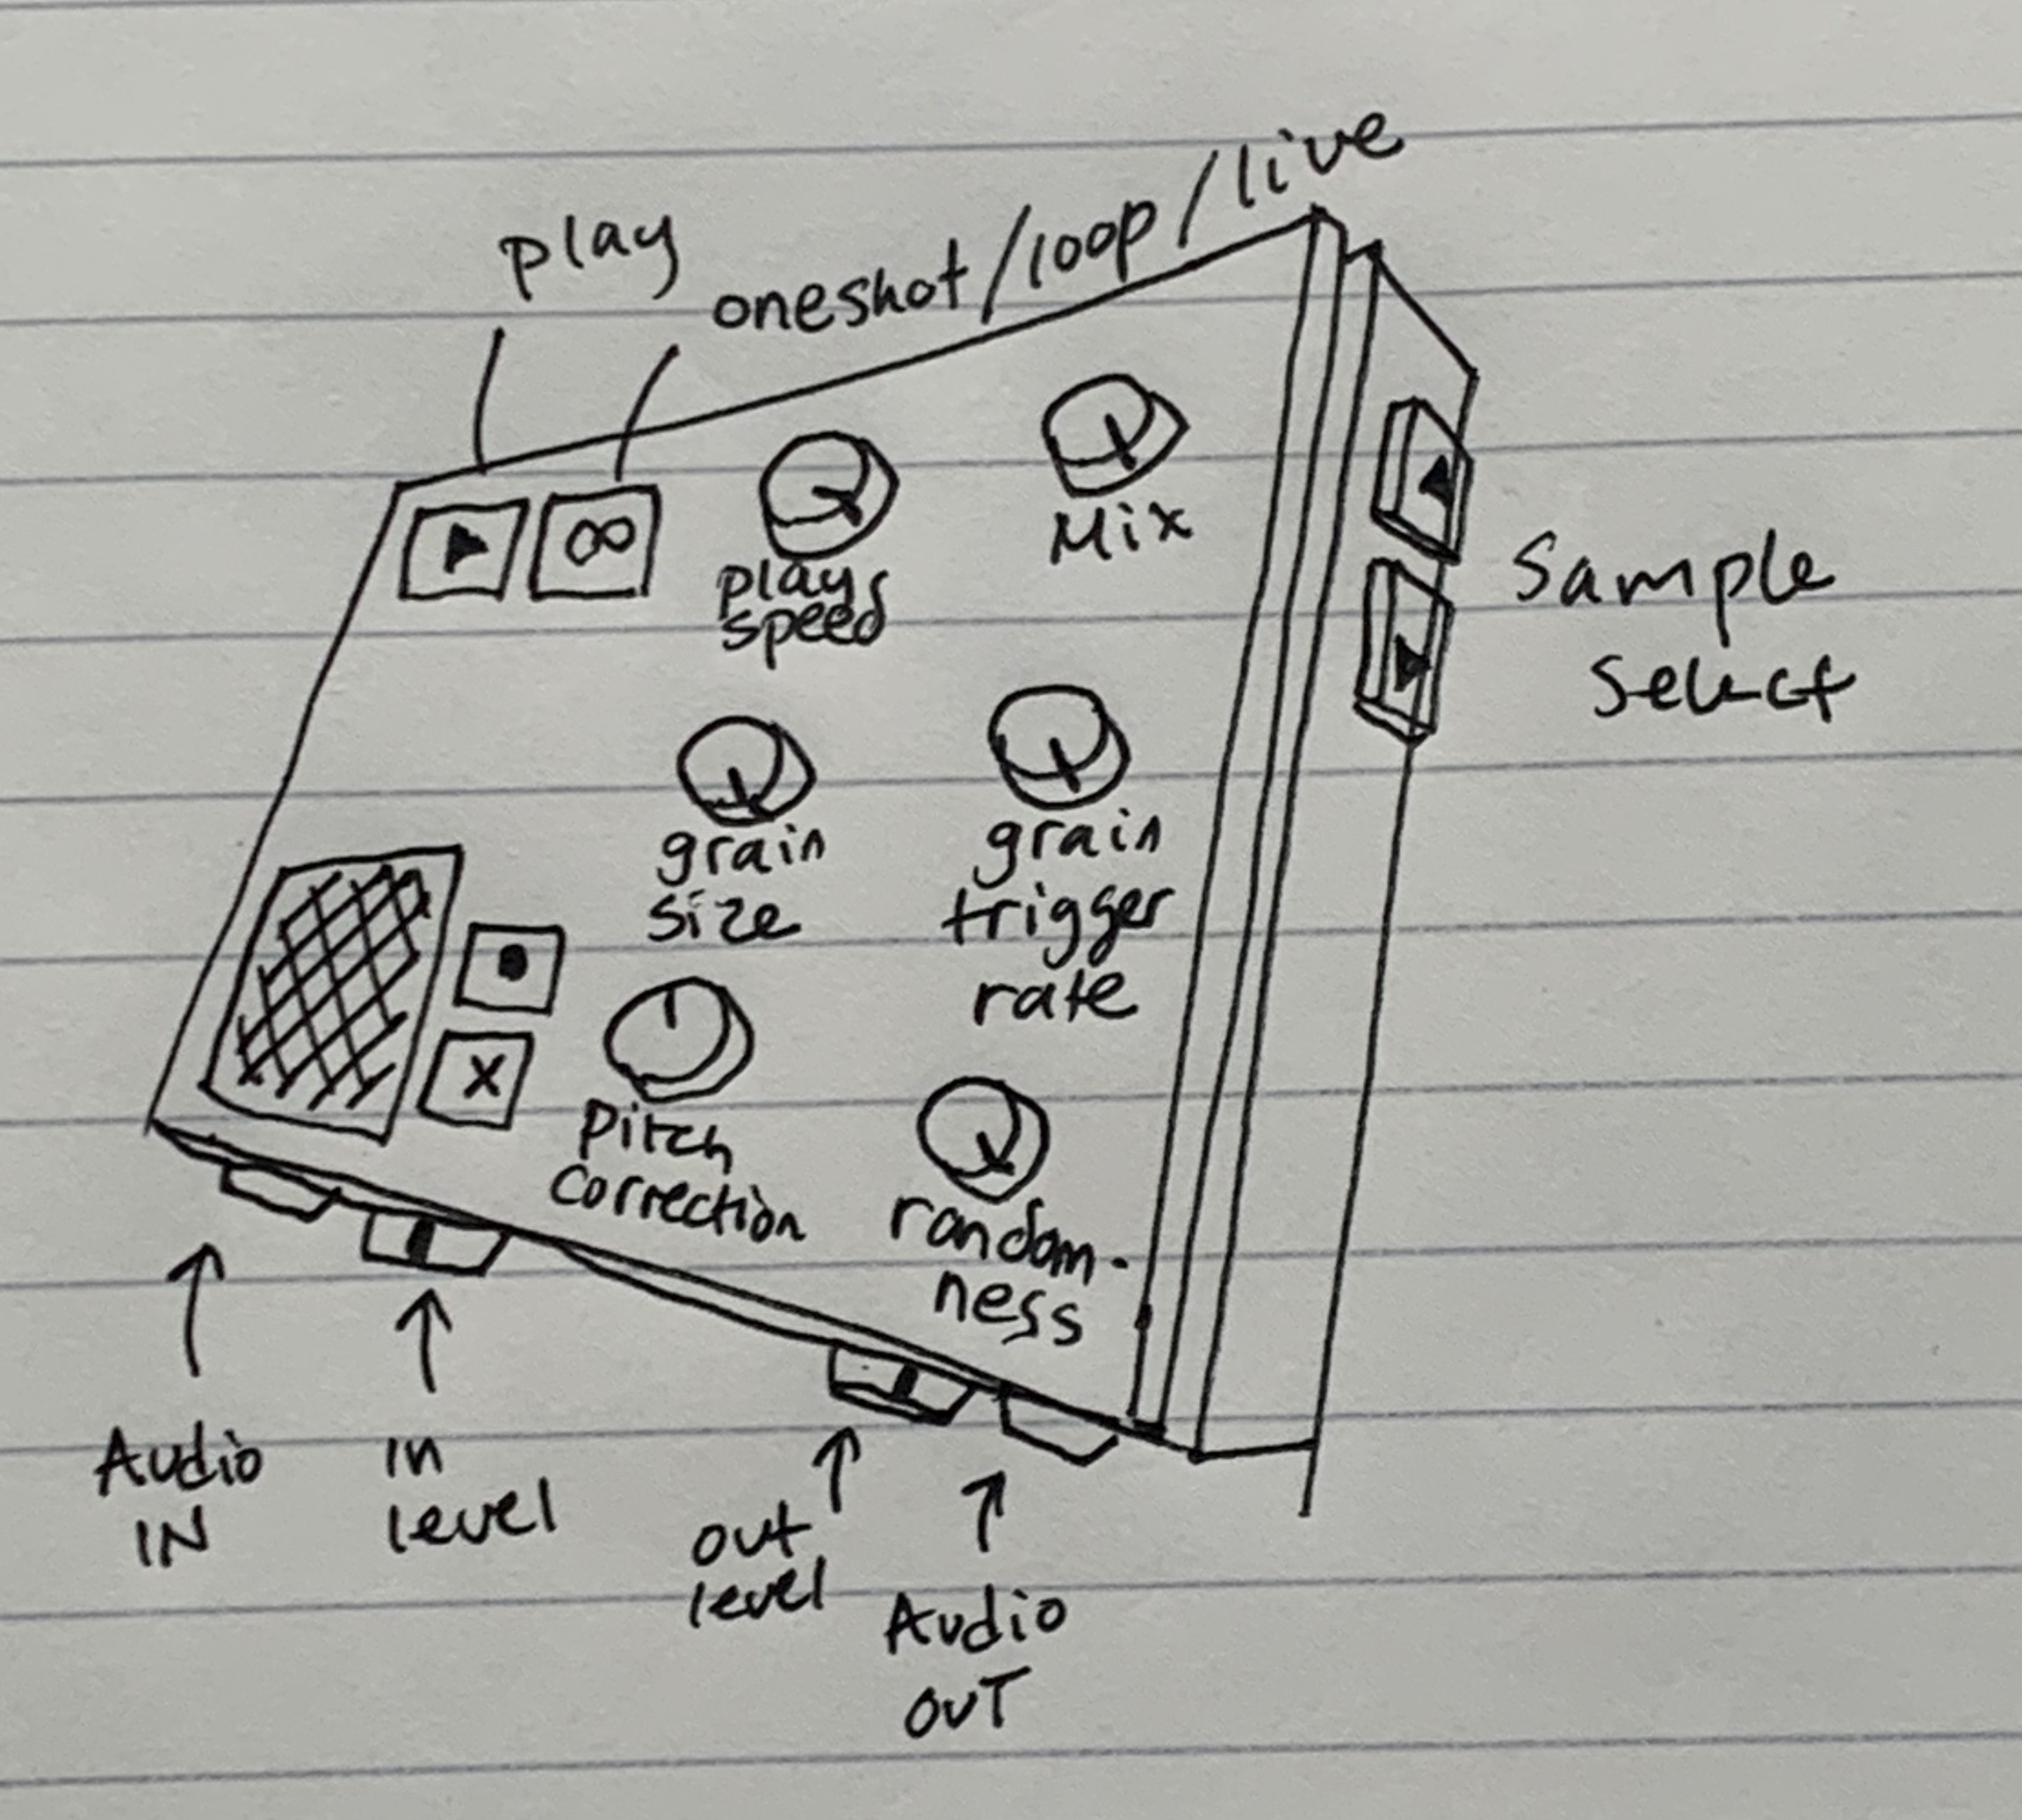 play
oneshot/loop/live
∞
Mix
play
speed
Sample
Select
grain
size
grain
trigger
rate
X
Pitch
Correction
random-
ness
Audio
IN
in
level
out
level
Audio
OUT